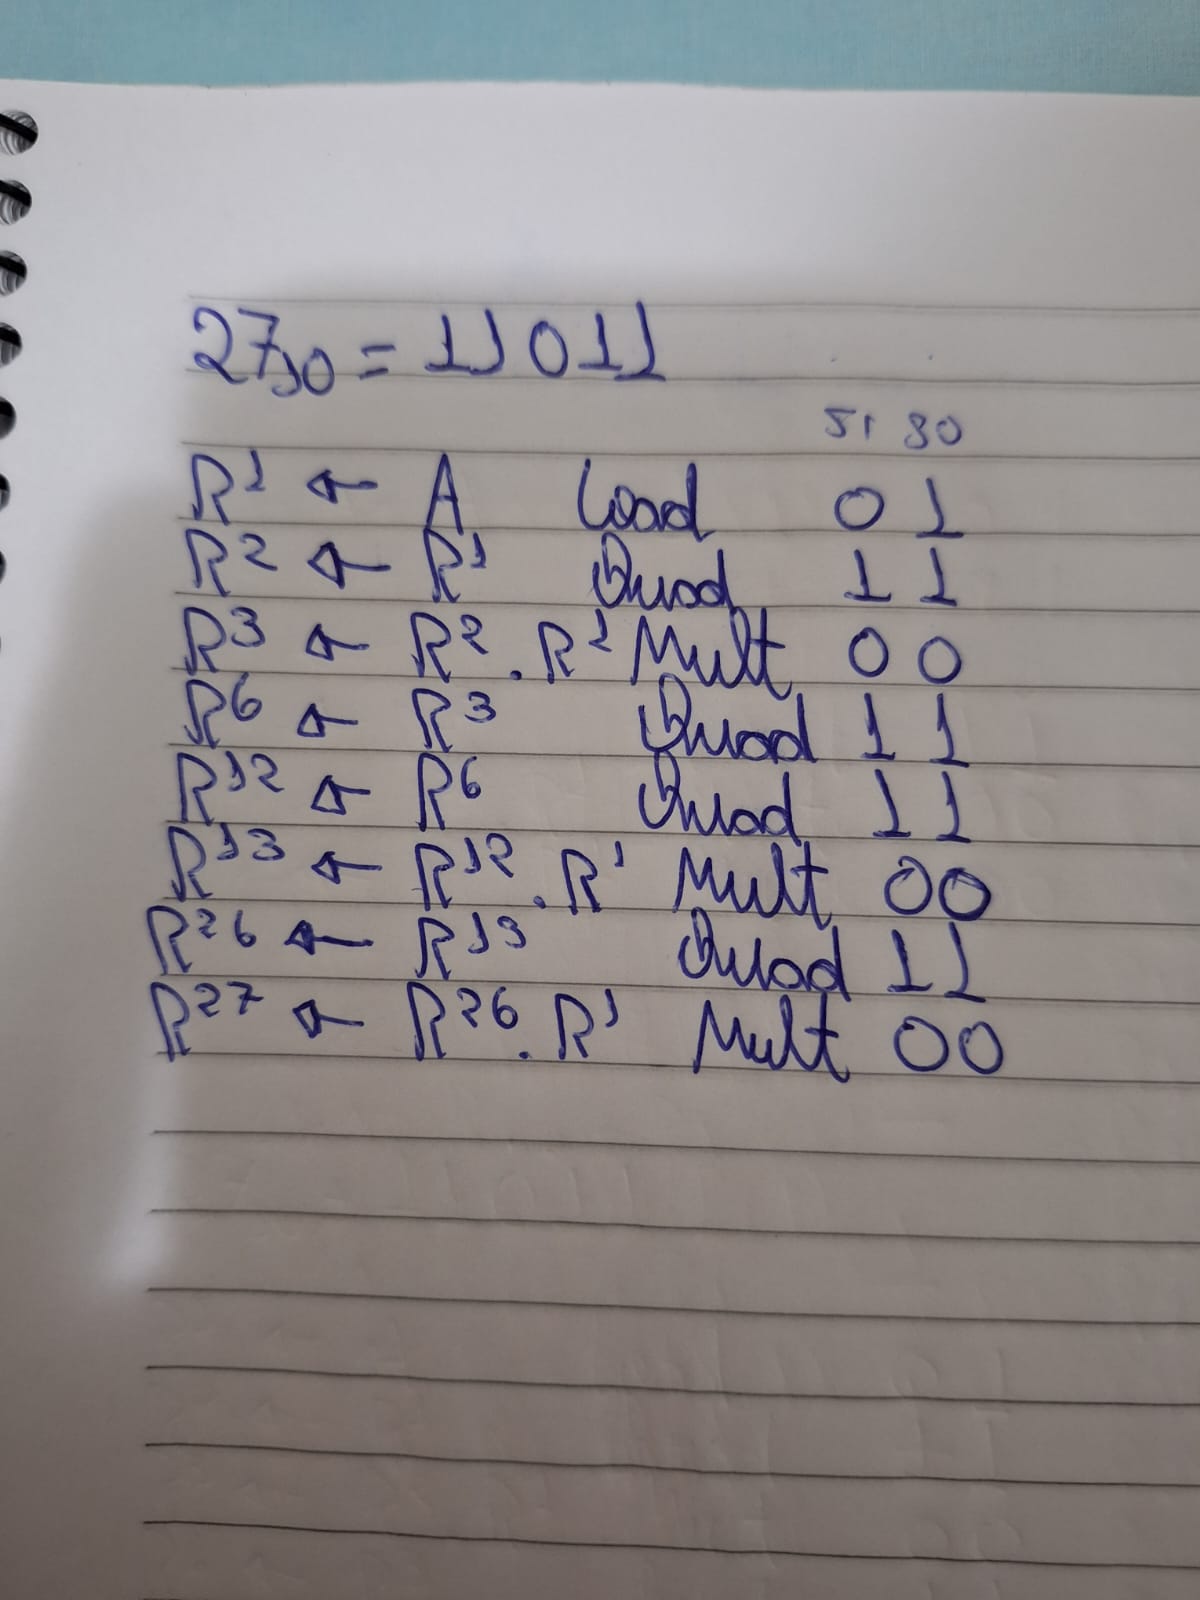 27₁₀ = 11011
S1 S0
R¹ ← A Load 01
R² ← R¹ Quad 11
R³ ← R² . R¹ Mult 00
R⁶ ← R³ Quad 11
R¹² ← R⁶ Quad 11
R¹³ ← R¹² . R¹ Mult 00
R²⁶ ← R¹³ Quad 11
R²⁷ ← R²⁶ . R¹ Mult 00